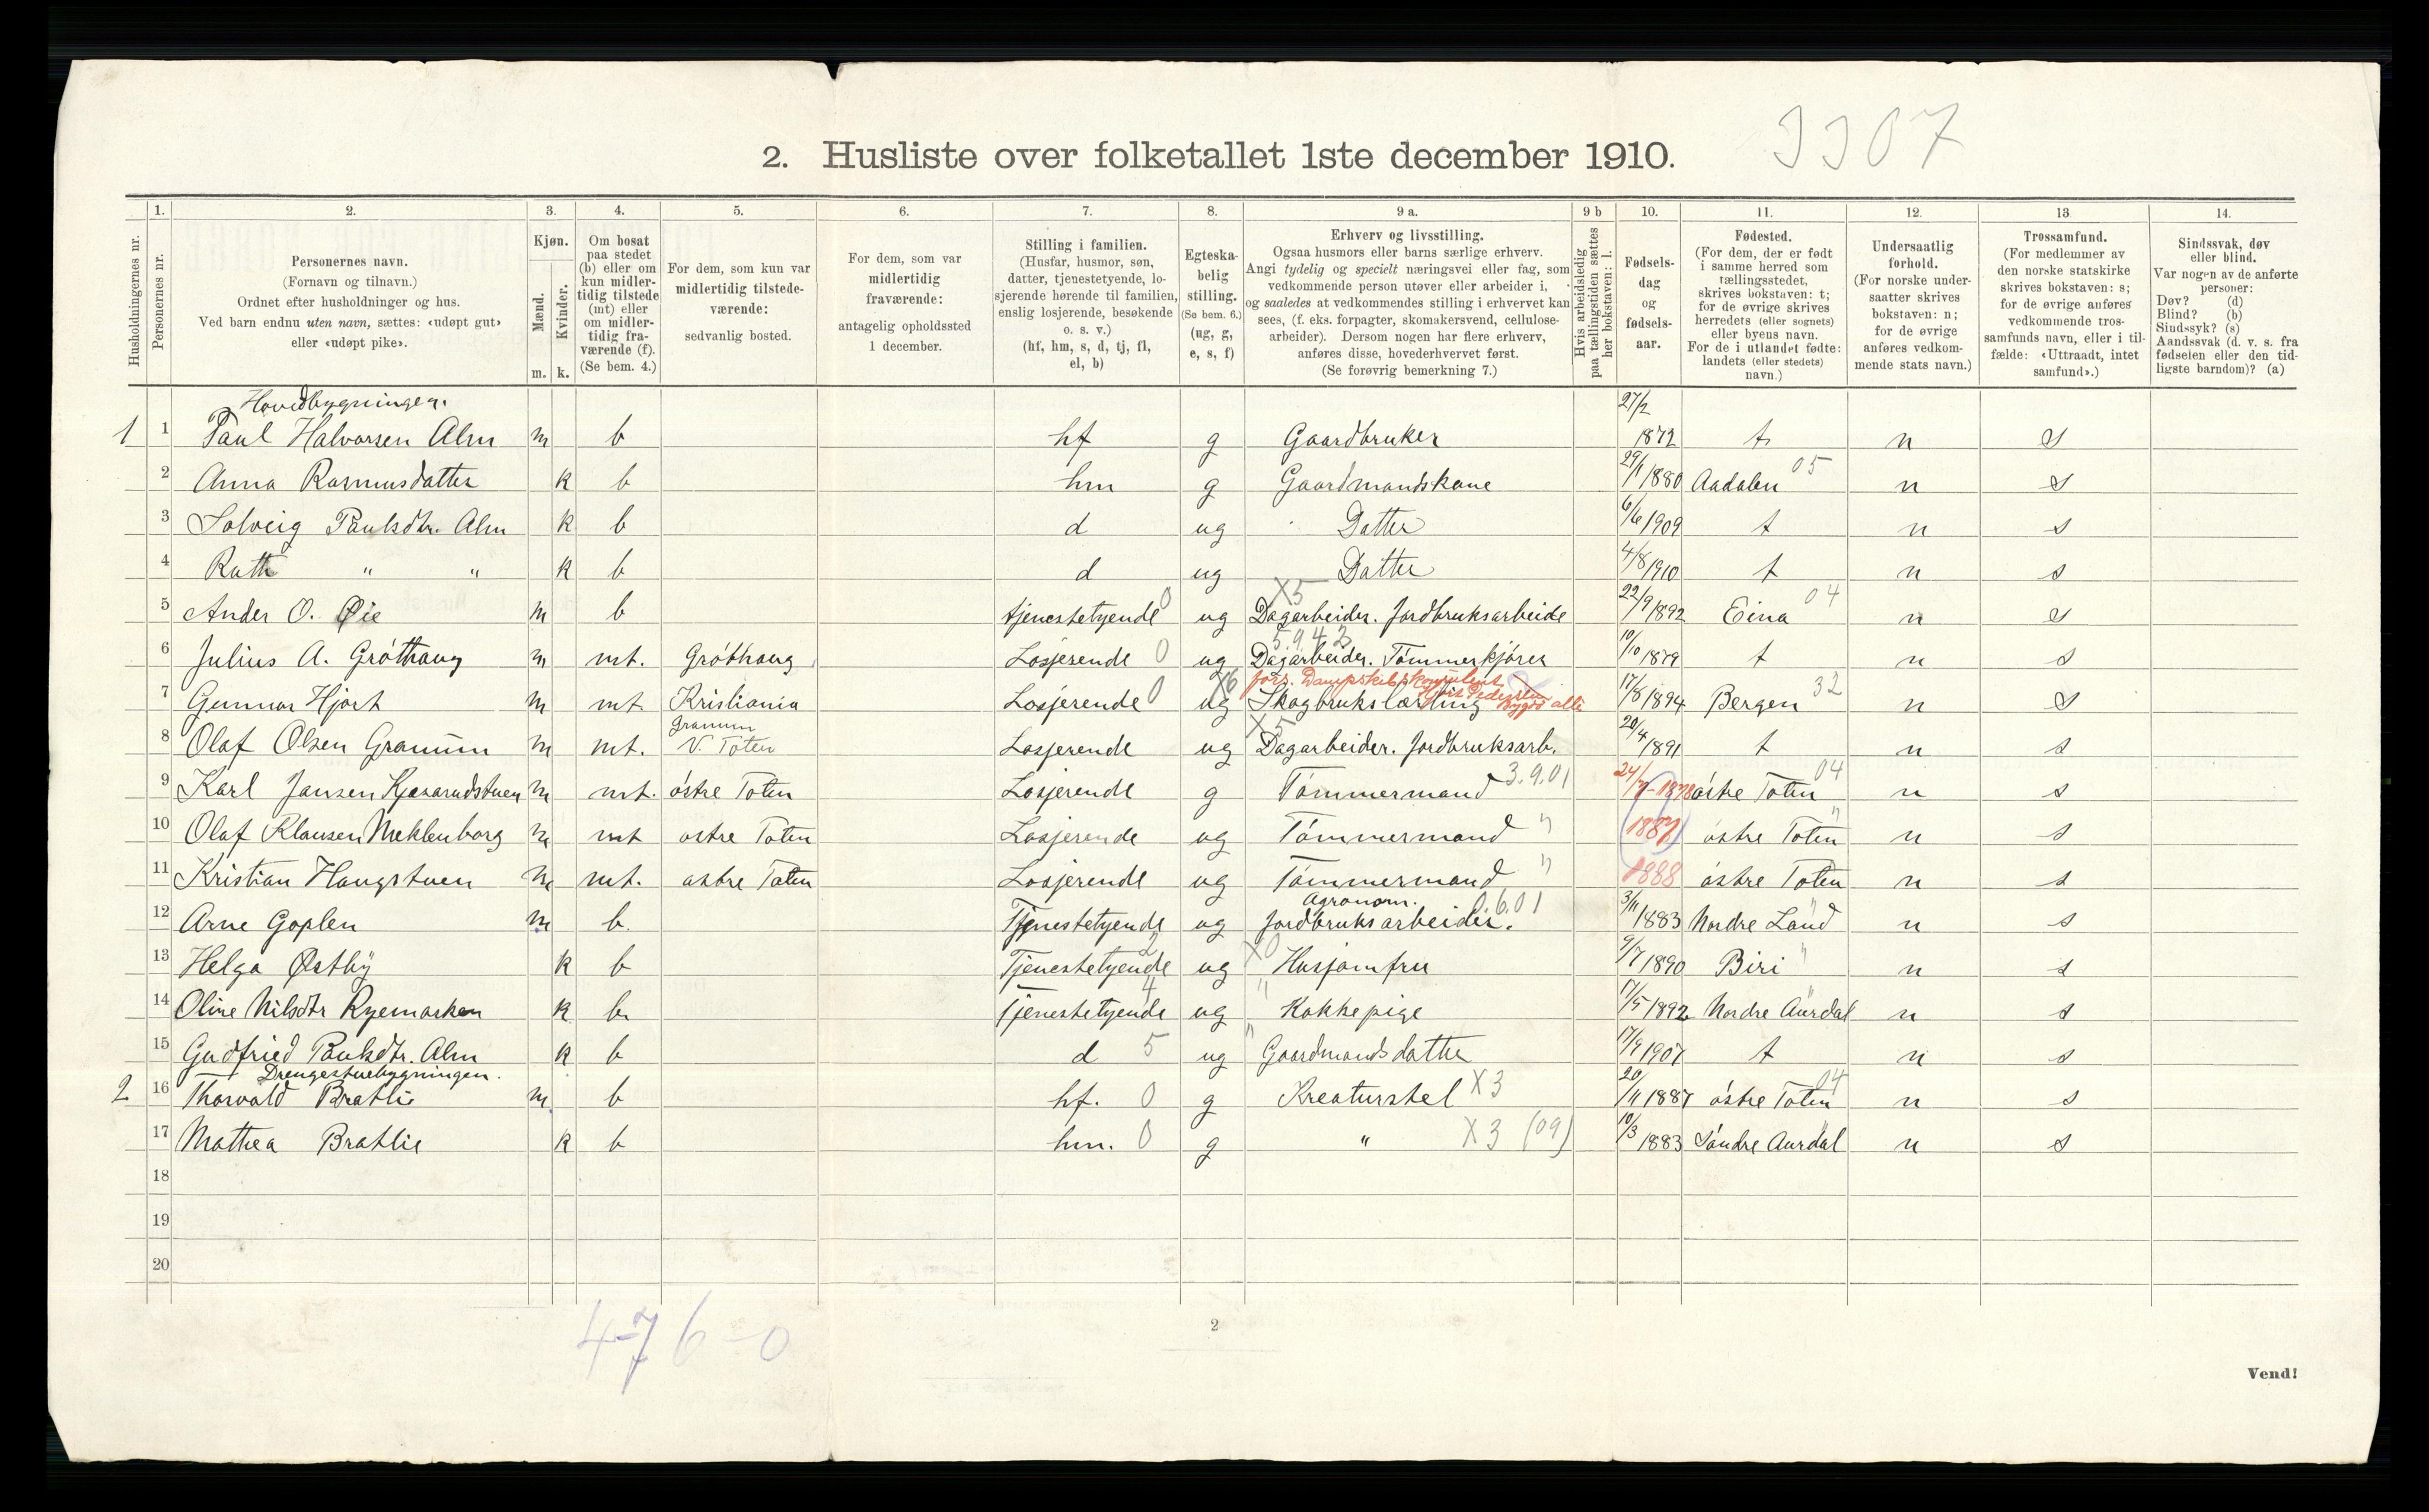 3307
2. Husliste over folketallet 1ste december 1910.
Husholdningernes nr.
1. Personernes nr.
2. Personernes navn.
(Fornavn og tilnavn.)
Ordnet efter husholdninger og hus.
Ved barn endnu uten navn, sættes: «udøpt gut»
eller «udøpt pike».
3. Kjøn.
Mænd. m.
Kvinder. k.
4. Om bosat
paa stedet
(b) eller om
kun midler-
tidig tilstede
(mt) eller
om midler-
tidig fra-
værende (f).
(Se bem. 4.)
5. For dem, som kun var
midlertidig tilstede-
værende:
sedvanlig bosted.
6. For dem, som var
midlertidig
fraværende:
antagelig opholdssted
1 december.
7. Stilling i familien.
(Husfar, husmor, søn,
datter, tjenestetyende, lo-
sjerende hørende til familien,
enslig losjerende, besøkende
o. s. v.)
(hf, hm, s, d, tj, fl,
el, b)
8. Egteska-
belig
stilling.
(Se bem. 6.)
(ug, g,
e, s, f)
9 a. Erhverv og livsstilling.
Ogsaa husmors eller barns særlige erhverv.
Angi tydelig og specielt næringsvei eller fag, som
vedkommende person utøver eller arbeider i,
og saaledes at vedkommendes stilling i erhvervet kan
sees, (f. eks. forpagter, skomakersvend, cellulose-
arbeider). Dersom nogen har flere erhverv,
anføres disse, hovederhvervet først.
(Se forøvrig bemerkning 7.)
9 b Hvis arbeidsledig
paa tællingstiden sættes
her bokstaven: l.
10. Fødsels-
dag
og
fødsels-
aar.
11. Fødested.
(For dem, der er født
i samme herred som
tællingsstedet,
skrives bokstaven: t;
for de øvrige skrives
herredets (eller sognets)
eller byens navn.
For de i utlandet fødte:
landets (eller stedets)
navn.)
12. Undersaatlig
forhold.
(For norske under-
saatter skrives
bokstaven: n;
for de øvrige
anføres vedkom-
mende stats navn.)
13 Trossamfund.
(For medlemmer av
den norske statskirke
skrives bokstaven: s;
for de øvrige anføres
vedkommende tros-
samfunds navn, eller i til-
fælde: «Uttraadt, intet
samfund».)
14. Sindssvak, døv
eller blind.
Var nogen av de anførte
personer:
Døv? (d)
Blind? (b)
Sindssyk? (s)
Aandssvak (d. v. s. fra
fødselen eller den tid-
ligste barndom)? (a)
Hovedbygningen.
1 1 Paul Halvorsen Alm m b hf g Gaardbruker 27/2 1872 t n s
2 Anna Rasmusdatter k b hm g Gaardmandskone 29/1 1880 Aadalen 05 n s
3 Solveig Paulsdtr. Alm k b d ug Datter 6/6 1909 t n s
4 Ruth " " k b d ug Datter 4/8 1910 t n s
5 Ander O. Øie m b tjenestetyende 0 ug X5 Dagarbeider. Jordbruksarbeide 22/9 1892 Eina 04 n s
6 Julius A. Gróthaug m mt. Gróthaug Losjerende 0 ug 5942 Dagarbeider. Tómmerkjórer 10/10 1879 t n s
7 Gunnar Hjort m mt Kristiania Losjerende 0 ug X6 fors. Dampskibskonsulent Skogbrukslærling 17/8 1894 Bergen 32 n s
8 Olaf Olsen Granum m mt. Granum V. Toten Losjerende ug X5 Dagarbeider. Jordbruksarb. 20/4 1891 t n s
9 Karl Jansen m mt. óstre Toten Losjerende g Tómmermand 3.9.01 24/7-1878 óstre Toten 04 n s
10 Olaf Klausen Meklenborg m mt ostre Toten Losjerende ug Tómmermand " (1887) óstre Toten " n s
11 Kristian Haugstuen m mt. ostre Toten Losjerende ug Tómmermand " 1888 óstre Toten n s
12 Arne Goplen m b. Tjenestetyende ug Agronom. 0.6.01 Jordbruksarbeider. 3/11 1883 Nordre Land " n s
13 Helga Østby k b Tjenestetyende 2 ug X0 Husjomfru 9/7 1890 Biri " n s
14 Oline Nilsdtr Ryemarken k b. Tjenestetyende 4 ug " Kokkepige 17/5 1892 Nordre Aurdal " n s
15 Gudfried Paulsdtr. Alm k b d 5 ug " Gaardmandsdatter 17/9 1907 t n s
Drengestuebygningen.
2 16 Thorvald Bratlie m. b hf. 0 g Kreaturstel X3 20/11 1887 óstre Toten 04 n s
17 Mathea Bratlie k b hm. 0 g " X3 (09) 10/3 1883 Sóndre Aurdal " n s
18
19
20
476-0
2
Vend!